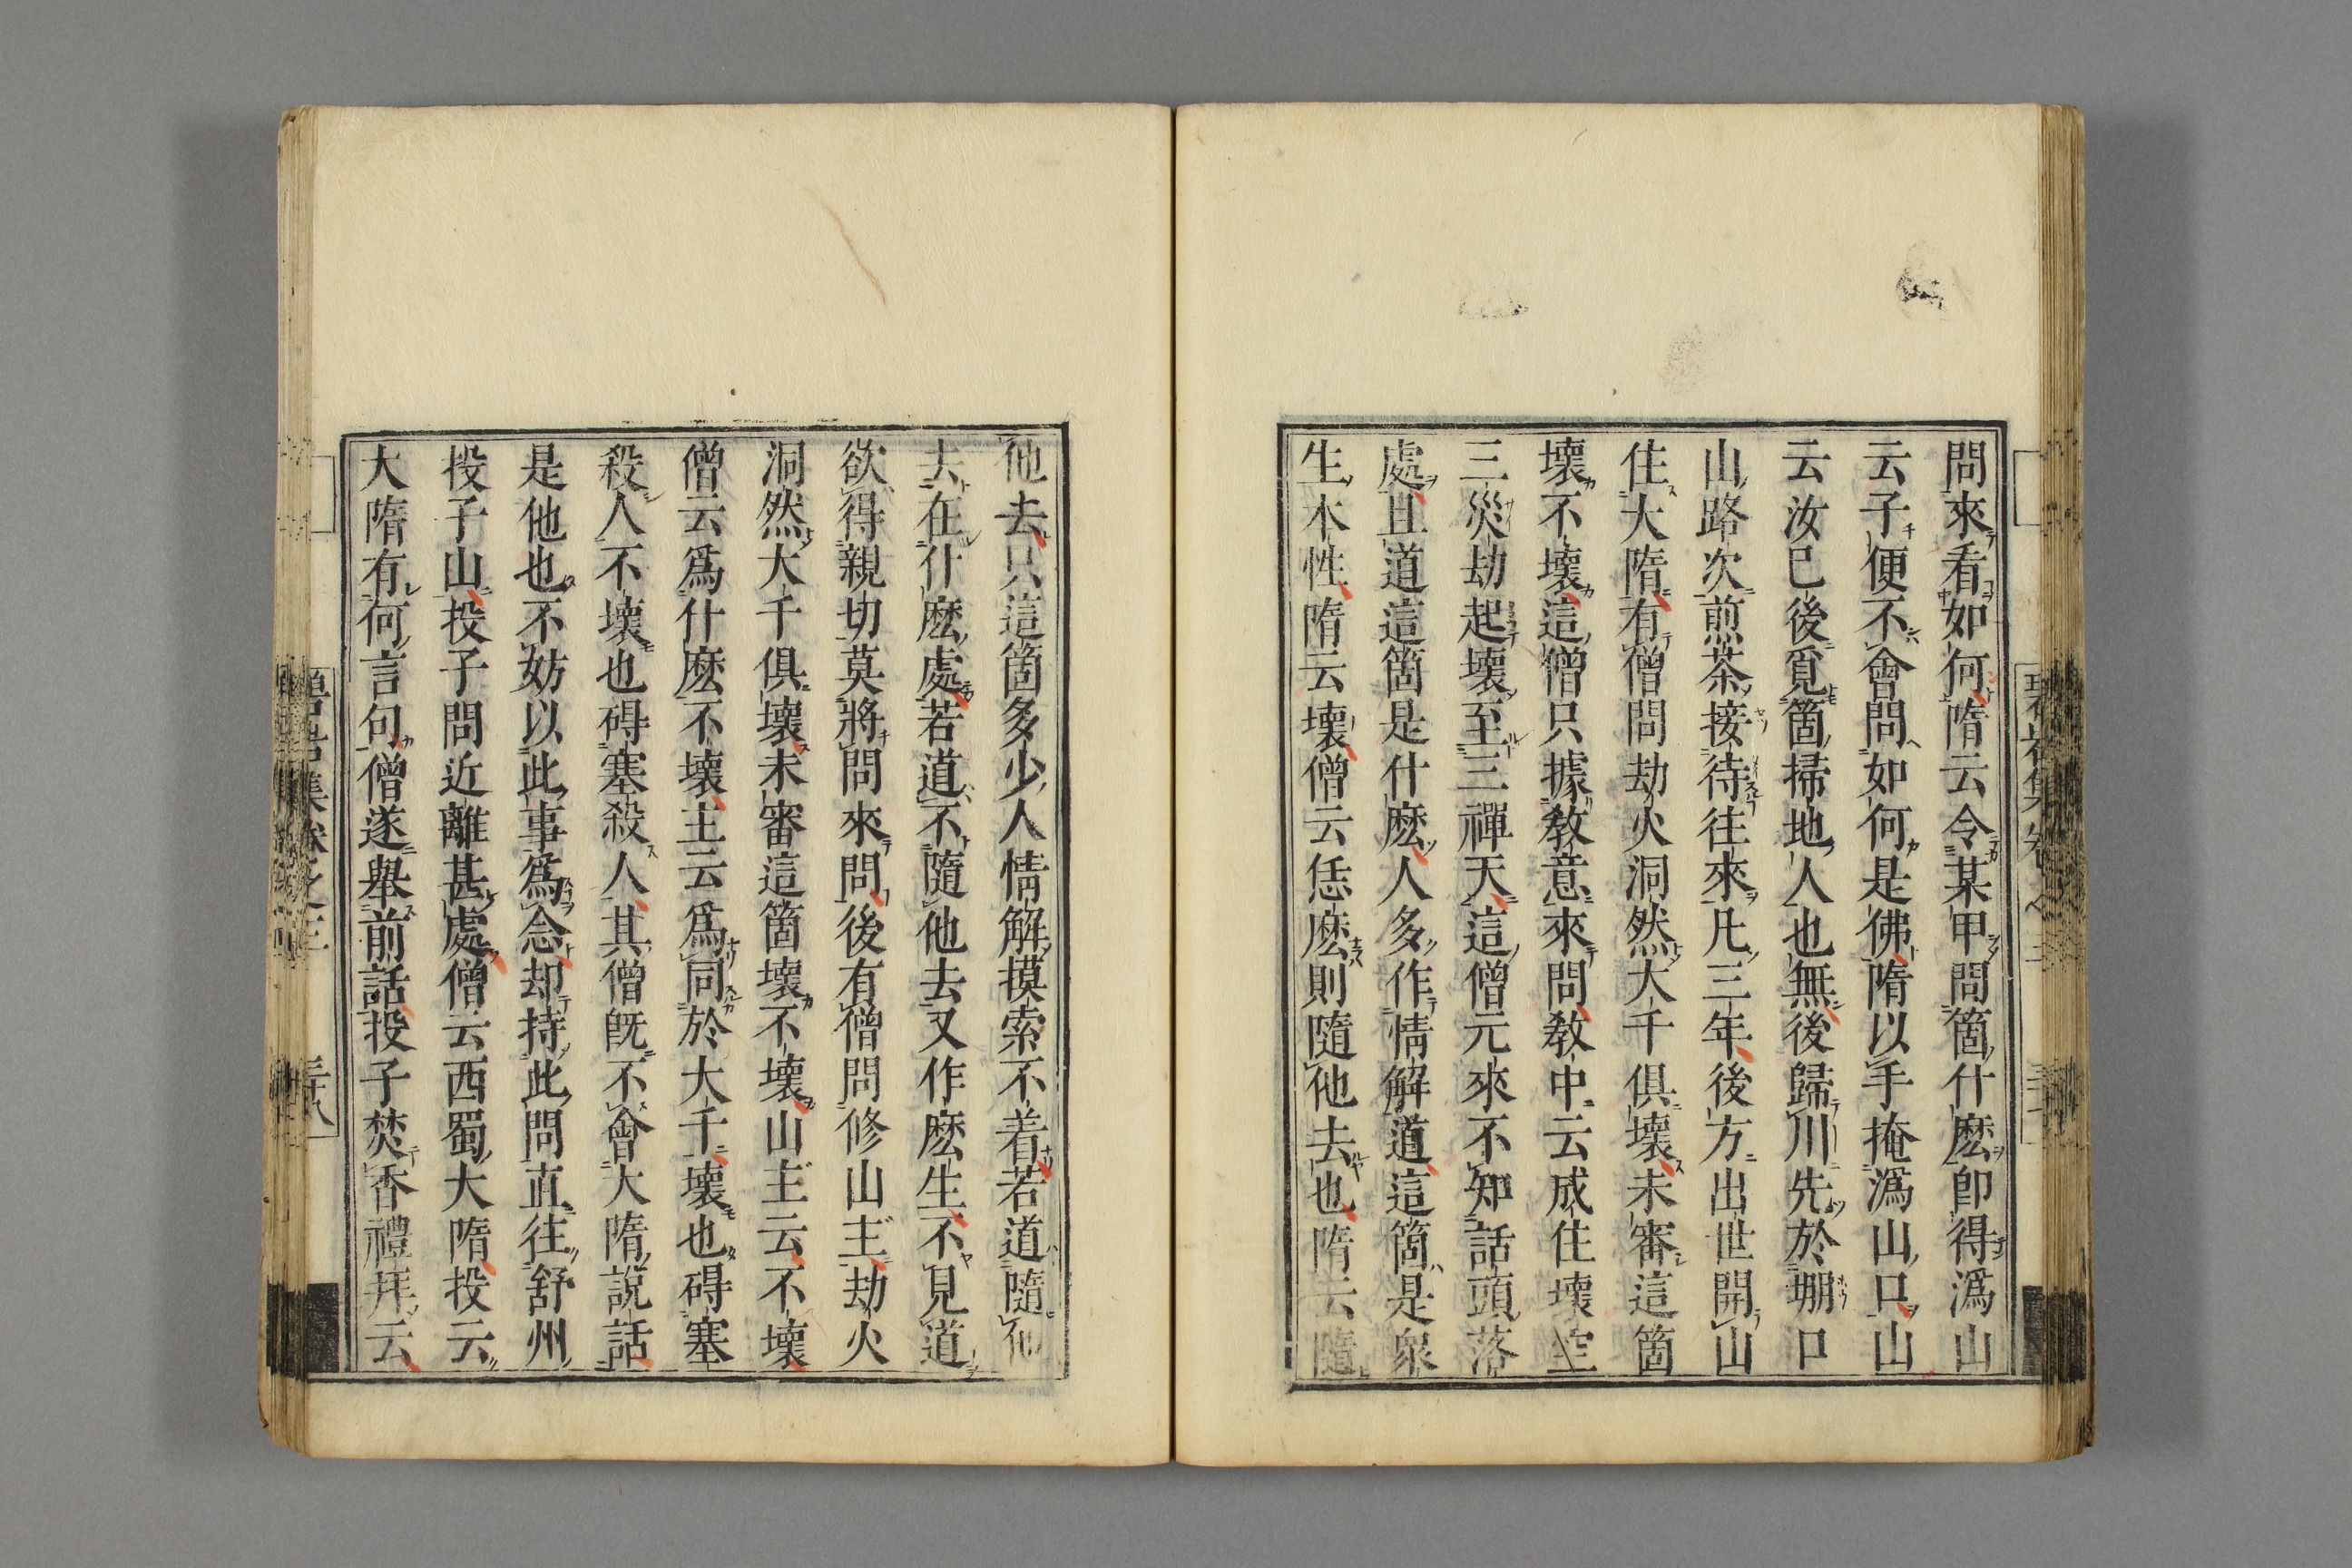 問來看如何隋云令某甲問箇什麽卽得潙山
云子便不會問如何是佛隋以手掩潙山口山
云汝已後覓箇掃地人也無後歸川先於堋口
山路次煎茶接待往來凡三年後方出世開山
住大隋有僧問劫火洞然大千俱壞未審這箇
壞不壞這僧只據敎意來問敎中云成住壞空
三災劫起壞至三禪天這僧元來不知話頭落
處且道這箇是什麽人多作情解道這箇是衆
生本性隋云壞僧云恁麽則隨他去也隋云隨
他去只這箇多少人情解摸索不着若道隨他
去在什麽處若道不隨他去又作麽生不見道
欲得親切莫將問來問後有僧問修山主劫火
洞然大千俱壞未審這箇壞不壞山主云不壞
僧云爲什麽不壞主云爲同於大千壞也碍塞
殺人不壞也碍塞殺人其僧旣不會大隋說話
是他也不妨以此事爲念却持此問直往舒州
投子山投子問近離甚處僧云西蜀大隋投云
大隋有何言句僧遂舉前話投子焚香禮拜云